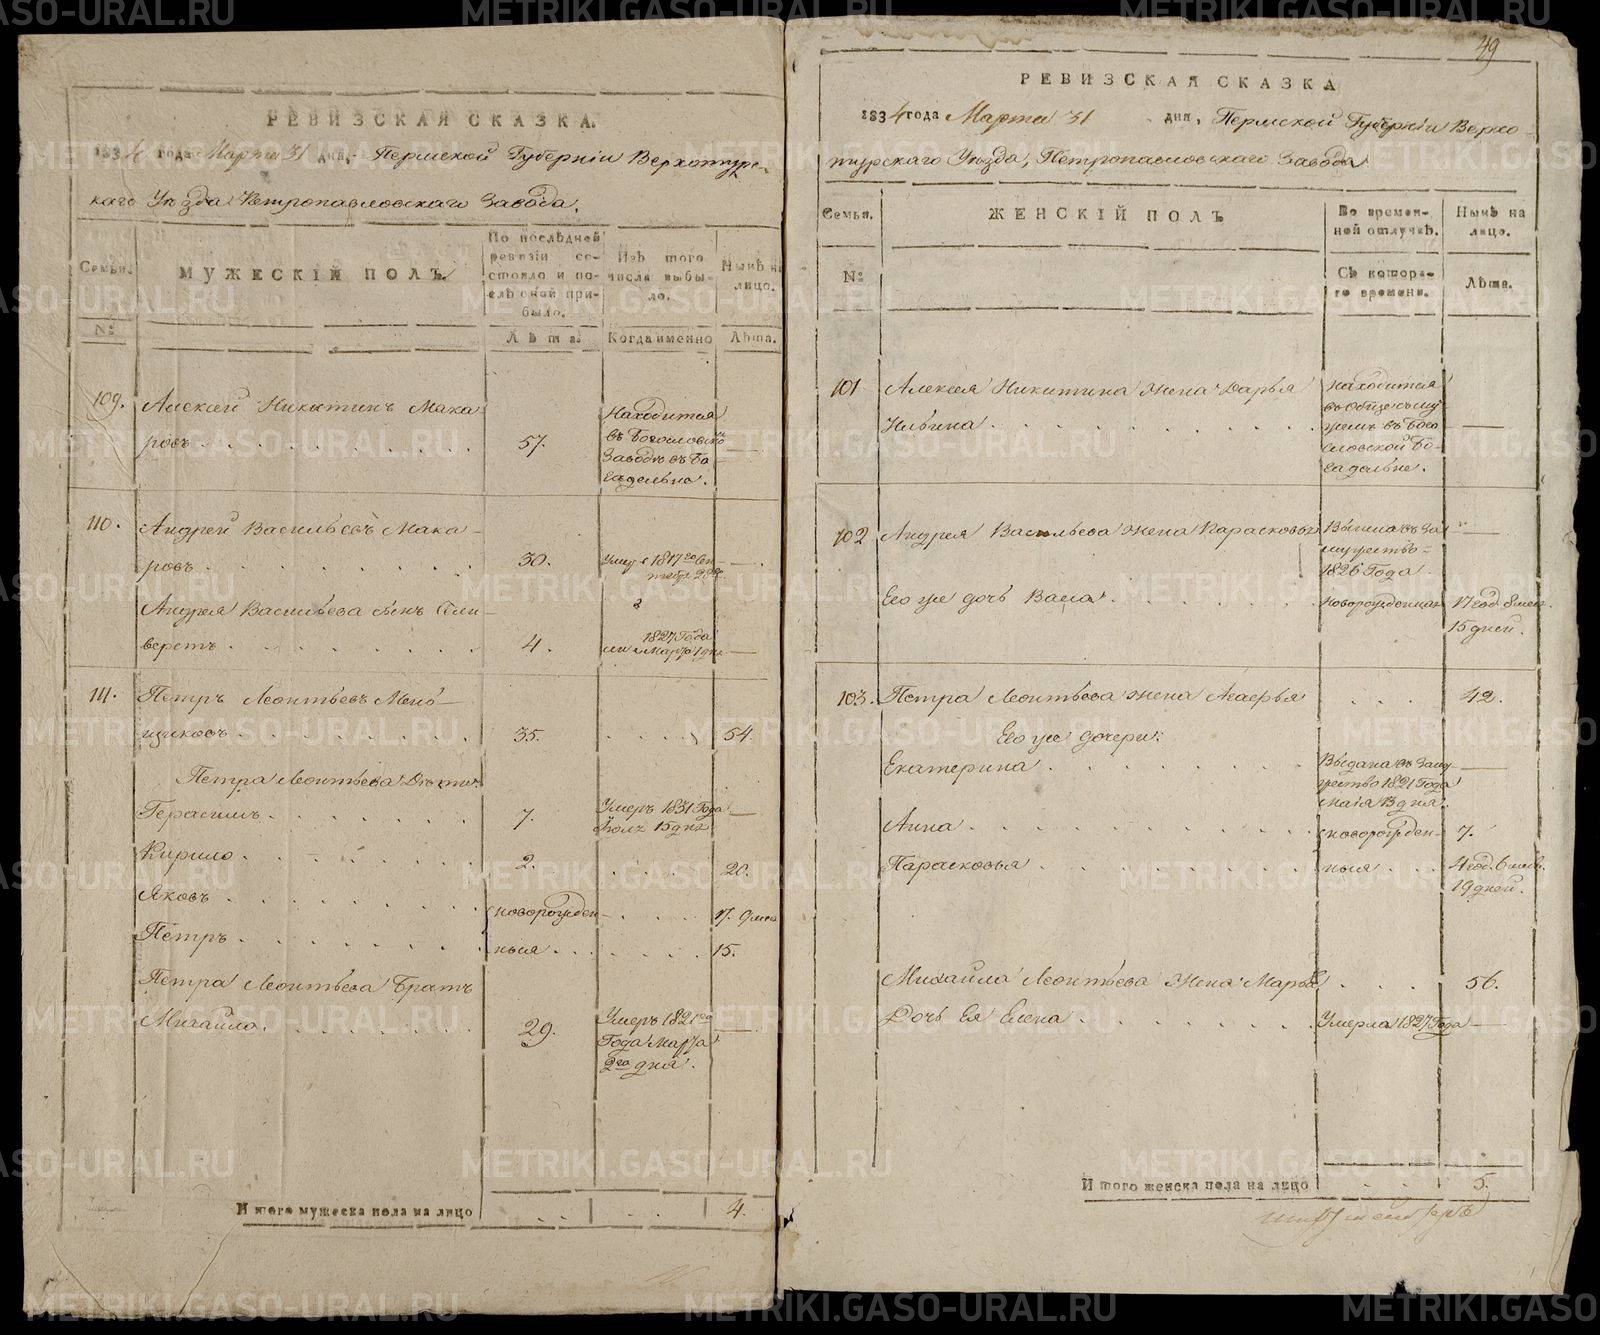 РЕВИЗСКАЯ СКАЗКА.
1834 года Марта 31 дня, Пермской Губернiи Верхотурс-
каго Уѣзда Петропавловскаго Завода.
Семьи.
№:
МУЖЕСКIЙ ПОЛЪ.
По послѣдней
ревизiи со-
стояло и по-
слѣ оной при-
было.
Лѣта.
Изъ того
числа выбы-
ло.
Когда именно
Нынѣ на
лицо.
Лѣта.
109. Алексей Никитинъ Мака
ровъ 57.
Находится
въ Богословско
Заводѣ въ Бо-
гадельна.
110. Андрей Васильевъ Мака-
ровъ 30.
Умер 1817го Сен-
Андрея Васильева сынъ Сели-
верстъ 4.
1827 Года
111. Петръ Леонтьевъ Мень-
щиковъ 35. 54.
Петра Леонтьева Дѣти
Герасимъ 7.
Умеръ 1831 Года
Iюля 15 дня
Кирило 2. 20.
Яковъ
новорожден- 17. 9 мес
Петръ
ныя 15.
Петра Леонтьева Братъ
Михайло 29.
Умеръ 1821го
Года Марта
2го дня.
И того мужеска пола на лицо 4.
49
РЕВИЗСКАЯ СКАЗКА
1834 года Марта 31 дня, Пермской Губернiи Верхо-
турскаго Уѣзда, Петропавловскаго Завода
Семьи.
№:
ЖЕНСКIЙ ПОЛЪ
Во времен-
ной отлучкѣ.
Съ которо-
го времени.
Нынѣ на
лицо.
Лѣта.
101 Алексея Никитина Жена Дарья
Ильина
находится
съ Общемъ му
жемъ въ Бого
словской Бо-
гадельне.
102 Андрея Васильева Жена Парасковья
Вышла въ за
мужество
1826 Года.
Его же дочь Васа
новорожденная 17 год. 8 мес.
15 дней.
103. Петра Леонтьева Жена Агафья 42.
Его же дочери:
Екатерина
Выдана въ Заму
жество 1821 Года
Маiя 13 дня.
Анна новорожден- 7.
Парасковья ныя 4 год. 6 мес.
19 дней.
Михайла Леонтьева Жена Марья 56.
Дочь Ея Елена Умерла 1827 Года
И того женска пола на лицо 5.
METRIKI.GASO-URAL.RU